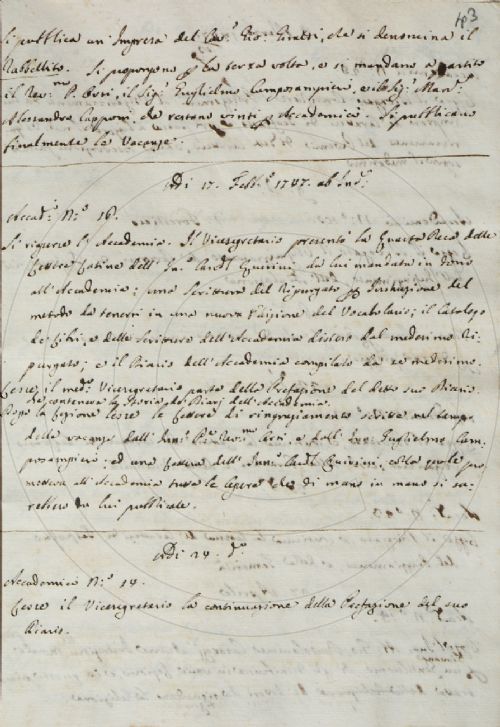 43
Si pubblica un' Impresa del Cav.e Gio: Giraldi, che si denomina il
Rabbellito. Si propongono p la terza volta, e si mandano a partito
il Rev.mo P. Orsi, il Sig.r Guglielmo Camposampiero, e il Sig.r Mar.
Alessandro Capponi, che restano vinti p Accademici. Si pubblicano
finalmente le Vacanze.
Adi 17. Febb.o 1747. ab Inc.
Accad.ci N.o 16.
Si riaprì l'Accademia. Il Vicesegretario presentò la Quarta Deca delle
Lettere Latine dell' Em.o Card.l Querini, da lui mandata in dono
all'Accademia; una Scrittura del Ripurgato p Instruzione del
metodo da tenersi in una nuova Edizione del Vocabolario; il Catalogo
de' Libri, e delle Scritture dell'Accademia disteso dal medesimo Ri-
purgato; e il Diario dell'Accademia compilato da se medesimo.
Lesse il med.o Vicesegretario parte della Prefazione del detto suo Diario
che conteneva la Storia de' Diarj dell'Accademia.
Dopo la lezione lesse le Lettere di ringraziamento scritte nel tempo
delle vacanze dall' P.re Rev.mo Orsi, e dal Sig. Guglielmo Cam-
posampiero; ed una Lettera dell' Em.o Card.l Querini, colla quale pro-
metteva all'Accademia tutte le Opere che di mano in mano si sa-
rebbero da lui pubblicate.
Adi 24. d.o
Accademici N.o 14.
Lesse il Vicesegretario la continuazione della Prefazione del suo
Diario.